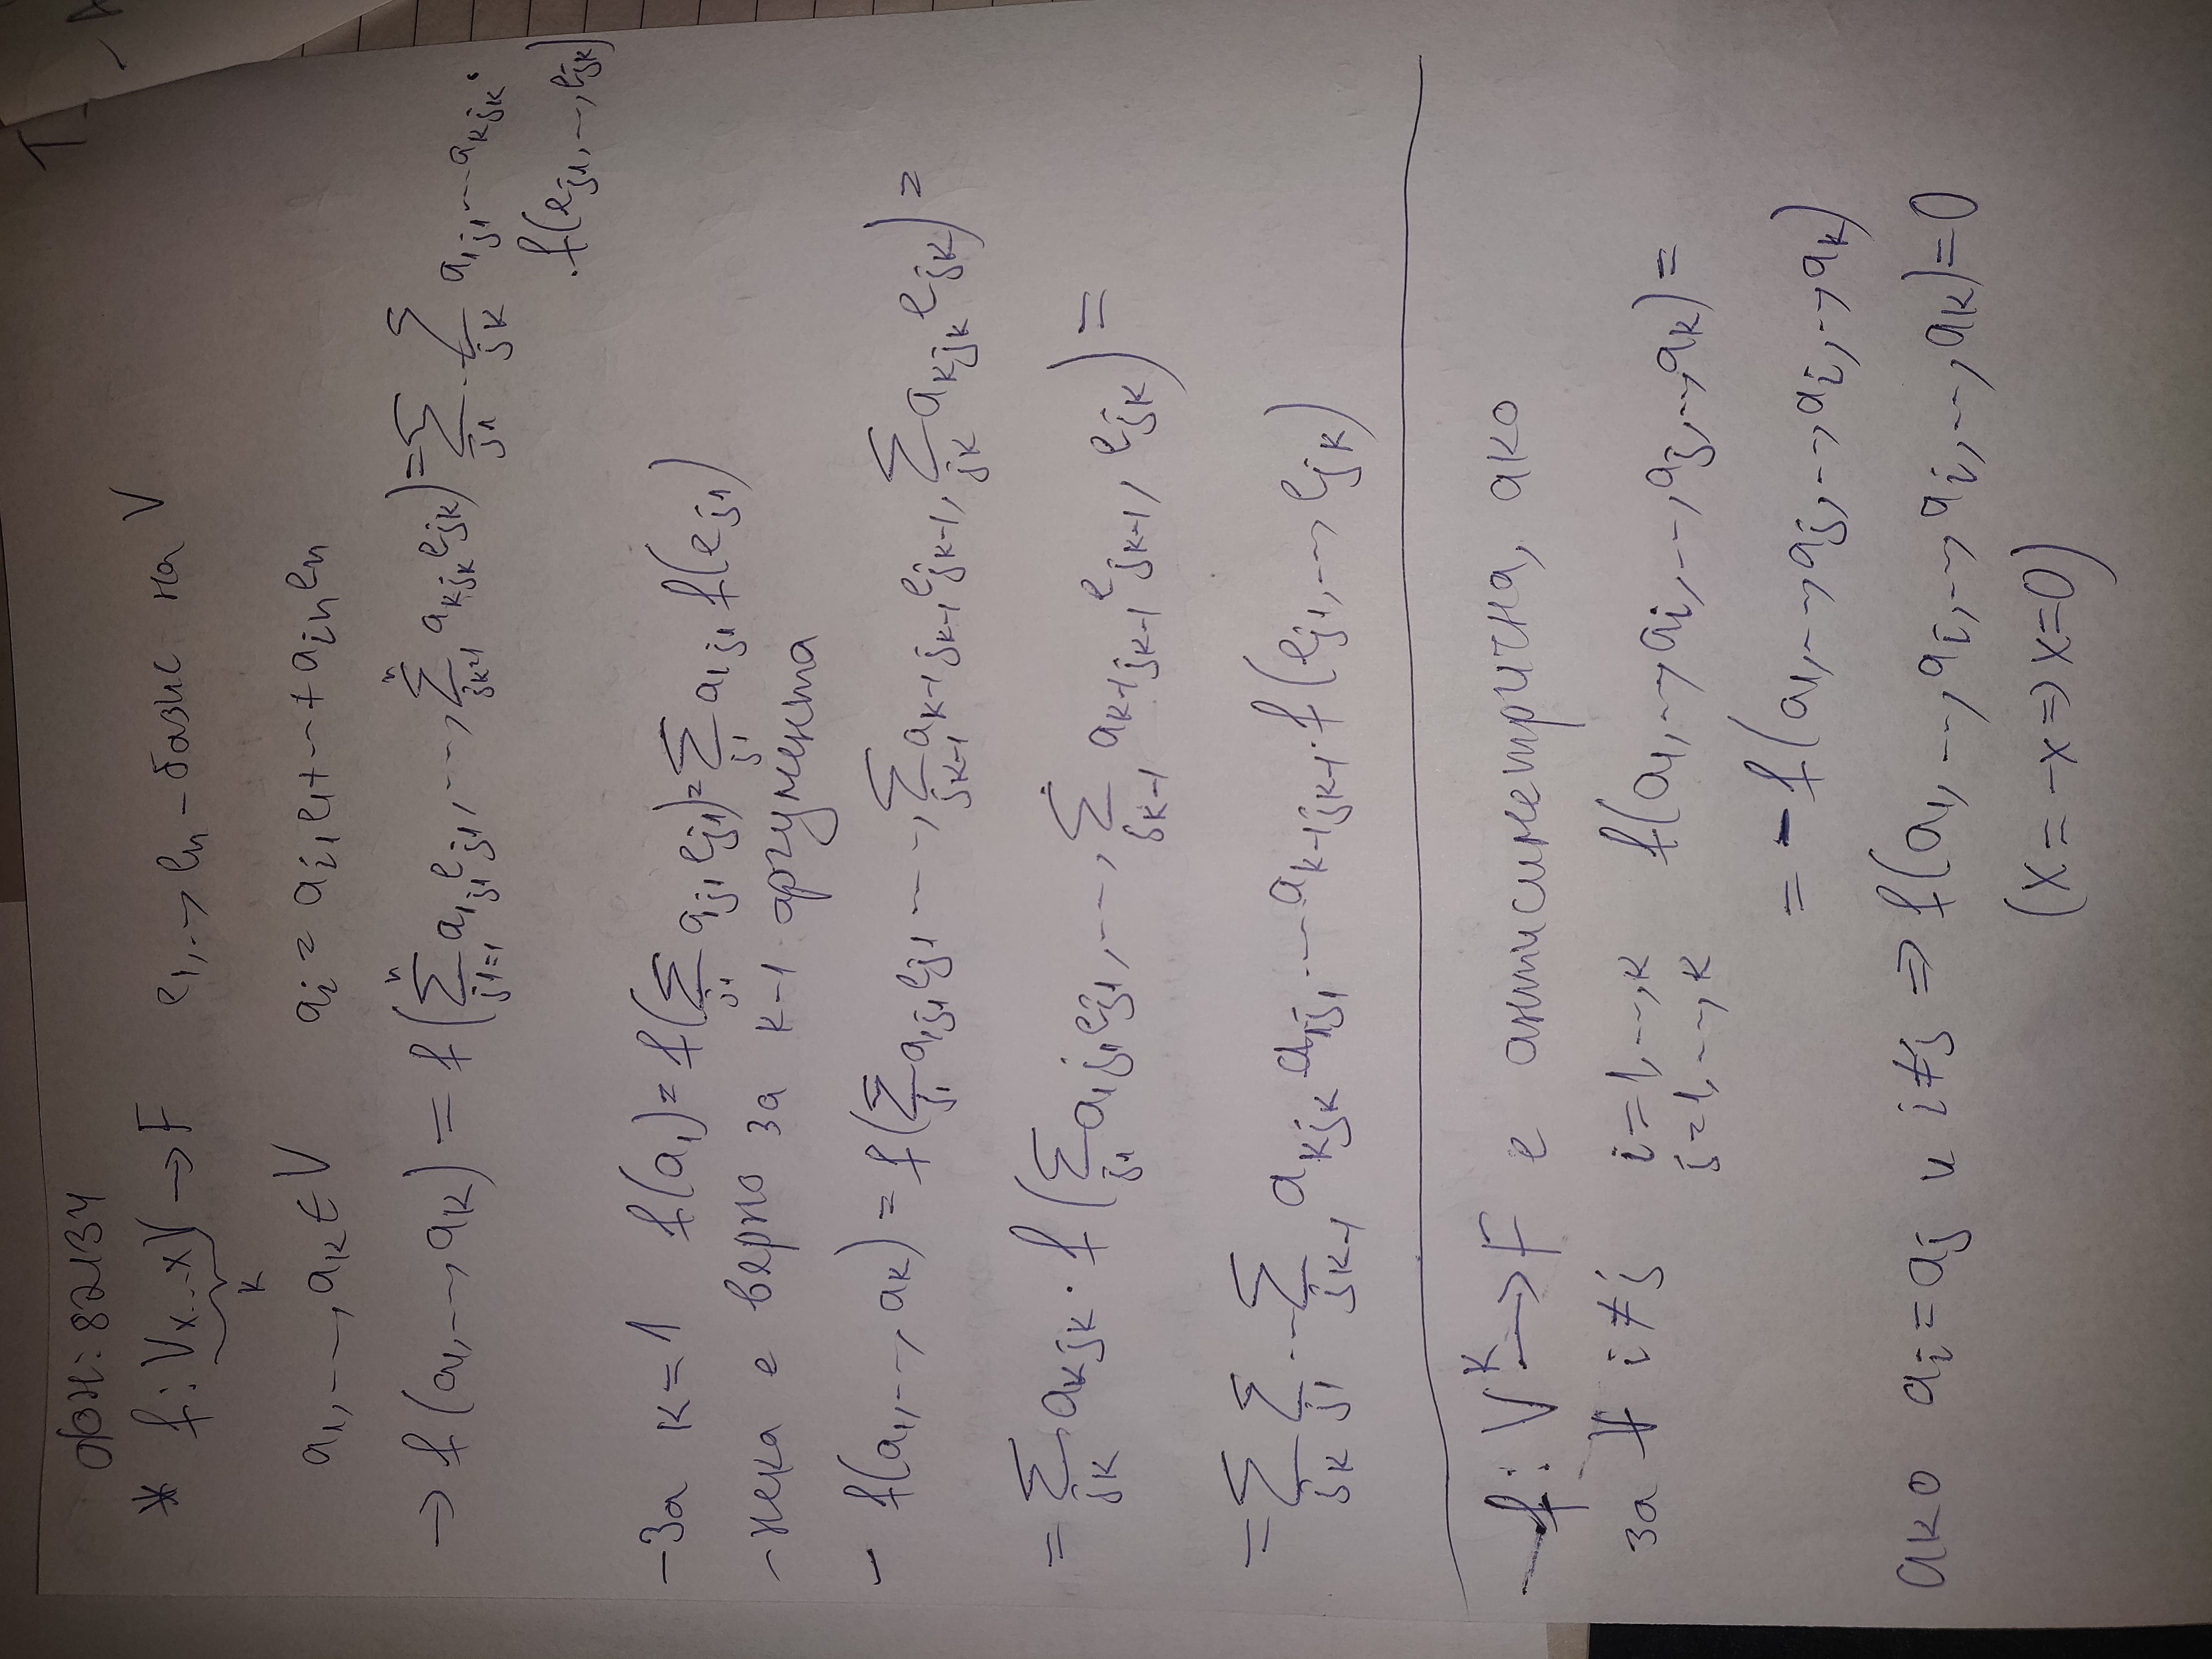 фн: 82134
* f: V x...x V → F e₁,..., eₙ - базис на V
k
a₁, ..., aₖ ∈ V aᵢ = aᵢ₁e₁ + ... + aᵢₙeₙ
→ f(a₁, ..., aₖ) = f(∑_{j1=1}^{n} a_{1j1} e_{j1}, ..., ∑_{jk=1}^{n} a_{kjk} e_{jk}) = ∑_{j1} ... ∑_{jk} a_{1j1} ... a_{kjk} .
. f(e_{j1}, ..., e_{jk})
- За k = 1 f(a₁) = f(∑_{j1} a_{1j1} e_{j1}) = ∑_{j1} a_{1j1} f(e_{j1})
- нека е вярно за k-1 аргумента
- f(a₁, ..., aₖ) = f(∑_{j1} a_{1j1} e_{j1} ..., ∑_{jk-1} a_{k-1jk-1} e_{jk-1}, ∑_{jk} a_{kjk} e_{jk}) =
= ∑_{jk} a_{kjk} . f(∑_{j1} a_{1j1} e_{j1}, ..., ∑_{jk-1} a_{k-1jk-1} e_{jk-1}, e_{jk}) =
= ∑_{jk} ∑_{j1} ... ∑_{jk-1} a_{kjk} a_{1j1} ... a_{k-1jk-1} . f(e_{j1}, ..., e_{jk})
- f: Vᵏ → F е антисиметрична, ако
за ∀ i ≠ j i = 1, ..., k f(a₁, ..., aᵢ, ..., aⱼ, ..., aₖ) =
j = 1, ..., k
= - f(a₁, ..., aⱼ, ..., aᵢ, ..., aₖ)
ако aᵢ = aⱼ и i ≠ j ⇒ f(a₁, ..., aᵢ, ..., aᵢ, ..., aₖ) = 0
(x = -x ⇒ x = 0)